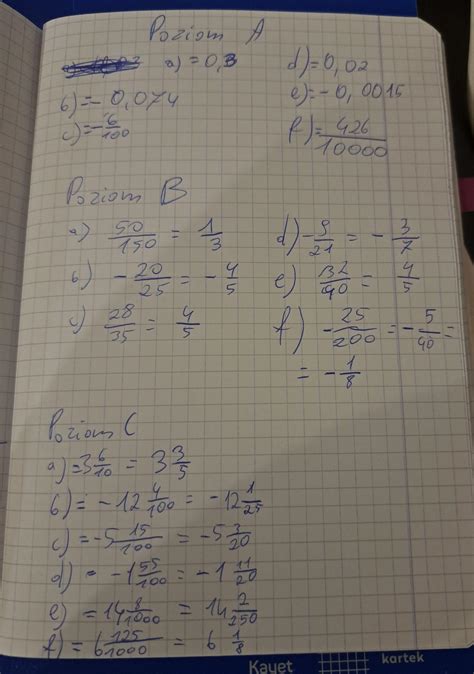 Poziom A
a) = 0,3 d) = 0,02
b) = - 0,074 e) = - 0,0015
c) = - 6/100 f) = 426/10000
Poziom B
a) 50/150 = 1/3 d) - 9/21 = - 3/7
b) - 20/25 = - 4/5 e) 32/40 = 4/5
c) 28/35 = 4/5 f) - 25/200 = - 5/40 =
= - 1/8
Poziom C
a) = 3 6/10 = 3 3/5
b) = - 12 4/100 = - 12 1/25
c) = - 5 15/100 = - 5 3/20
d) = - 1 55/100 = - 1 11/20
e) = 14 8/1000 = 14 2/250
f) = 6 125/1000 = 6 1/8
Kayet kartek